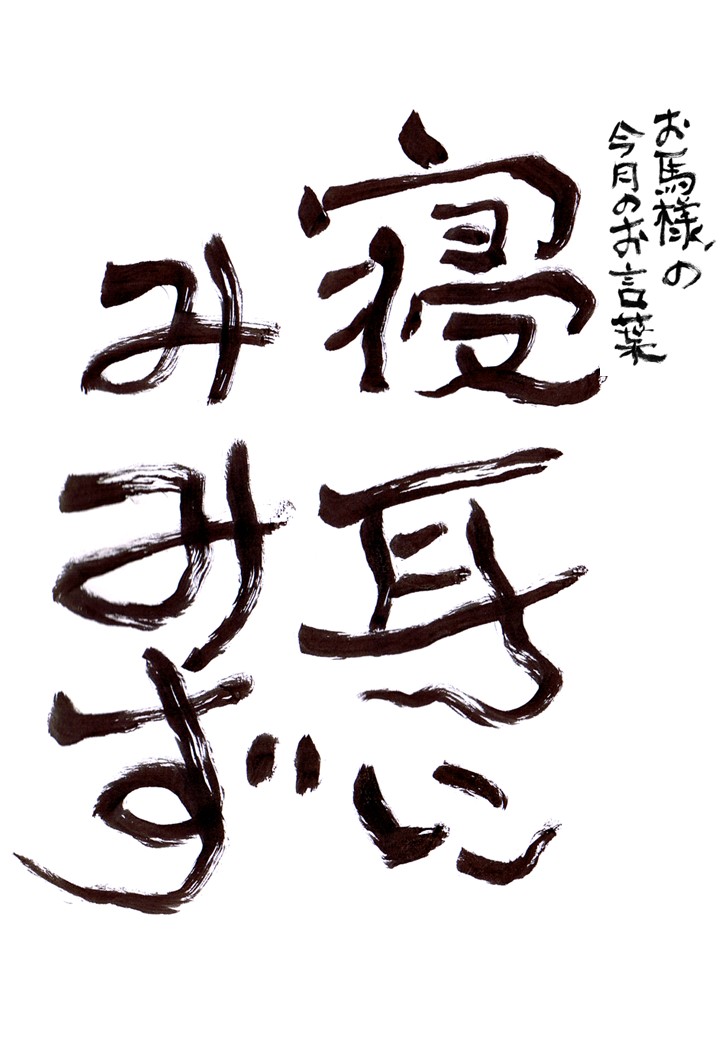 お馬様の
今月のお言葉
寝耳に
みみず